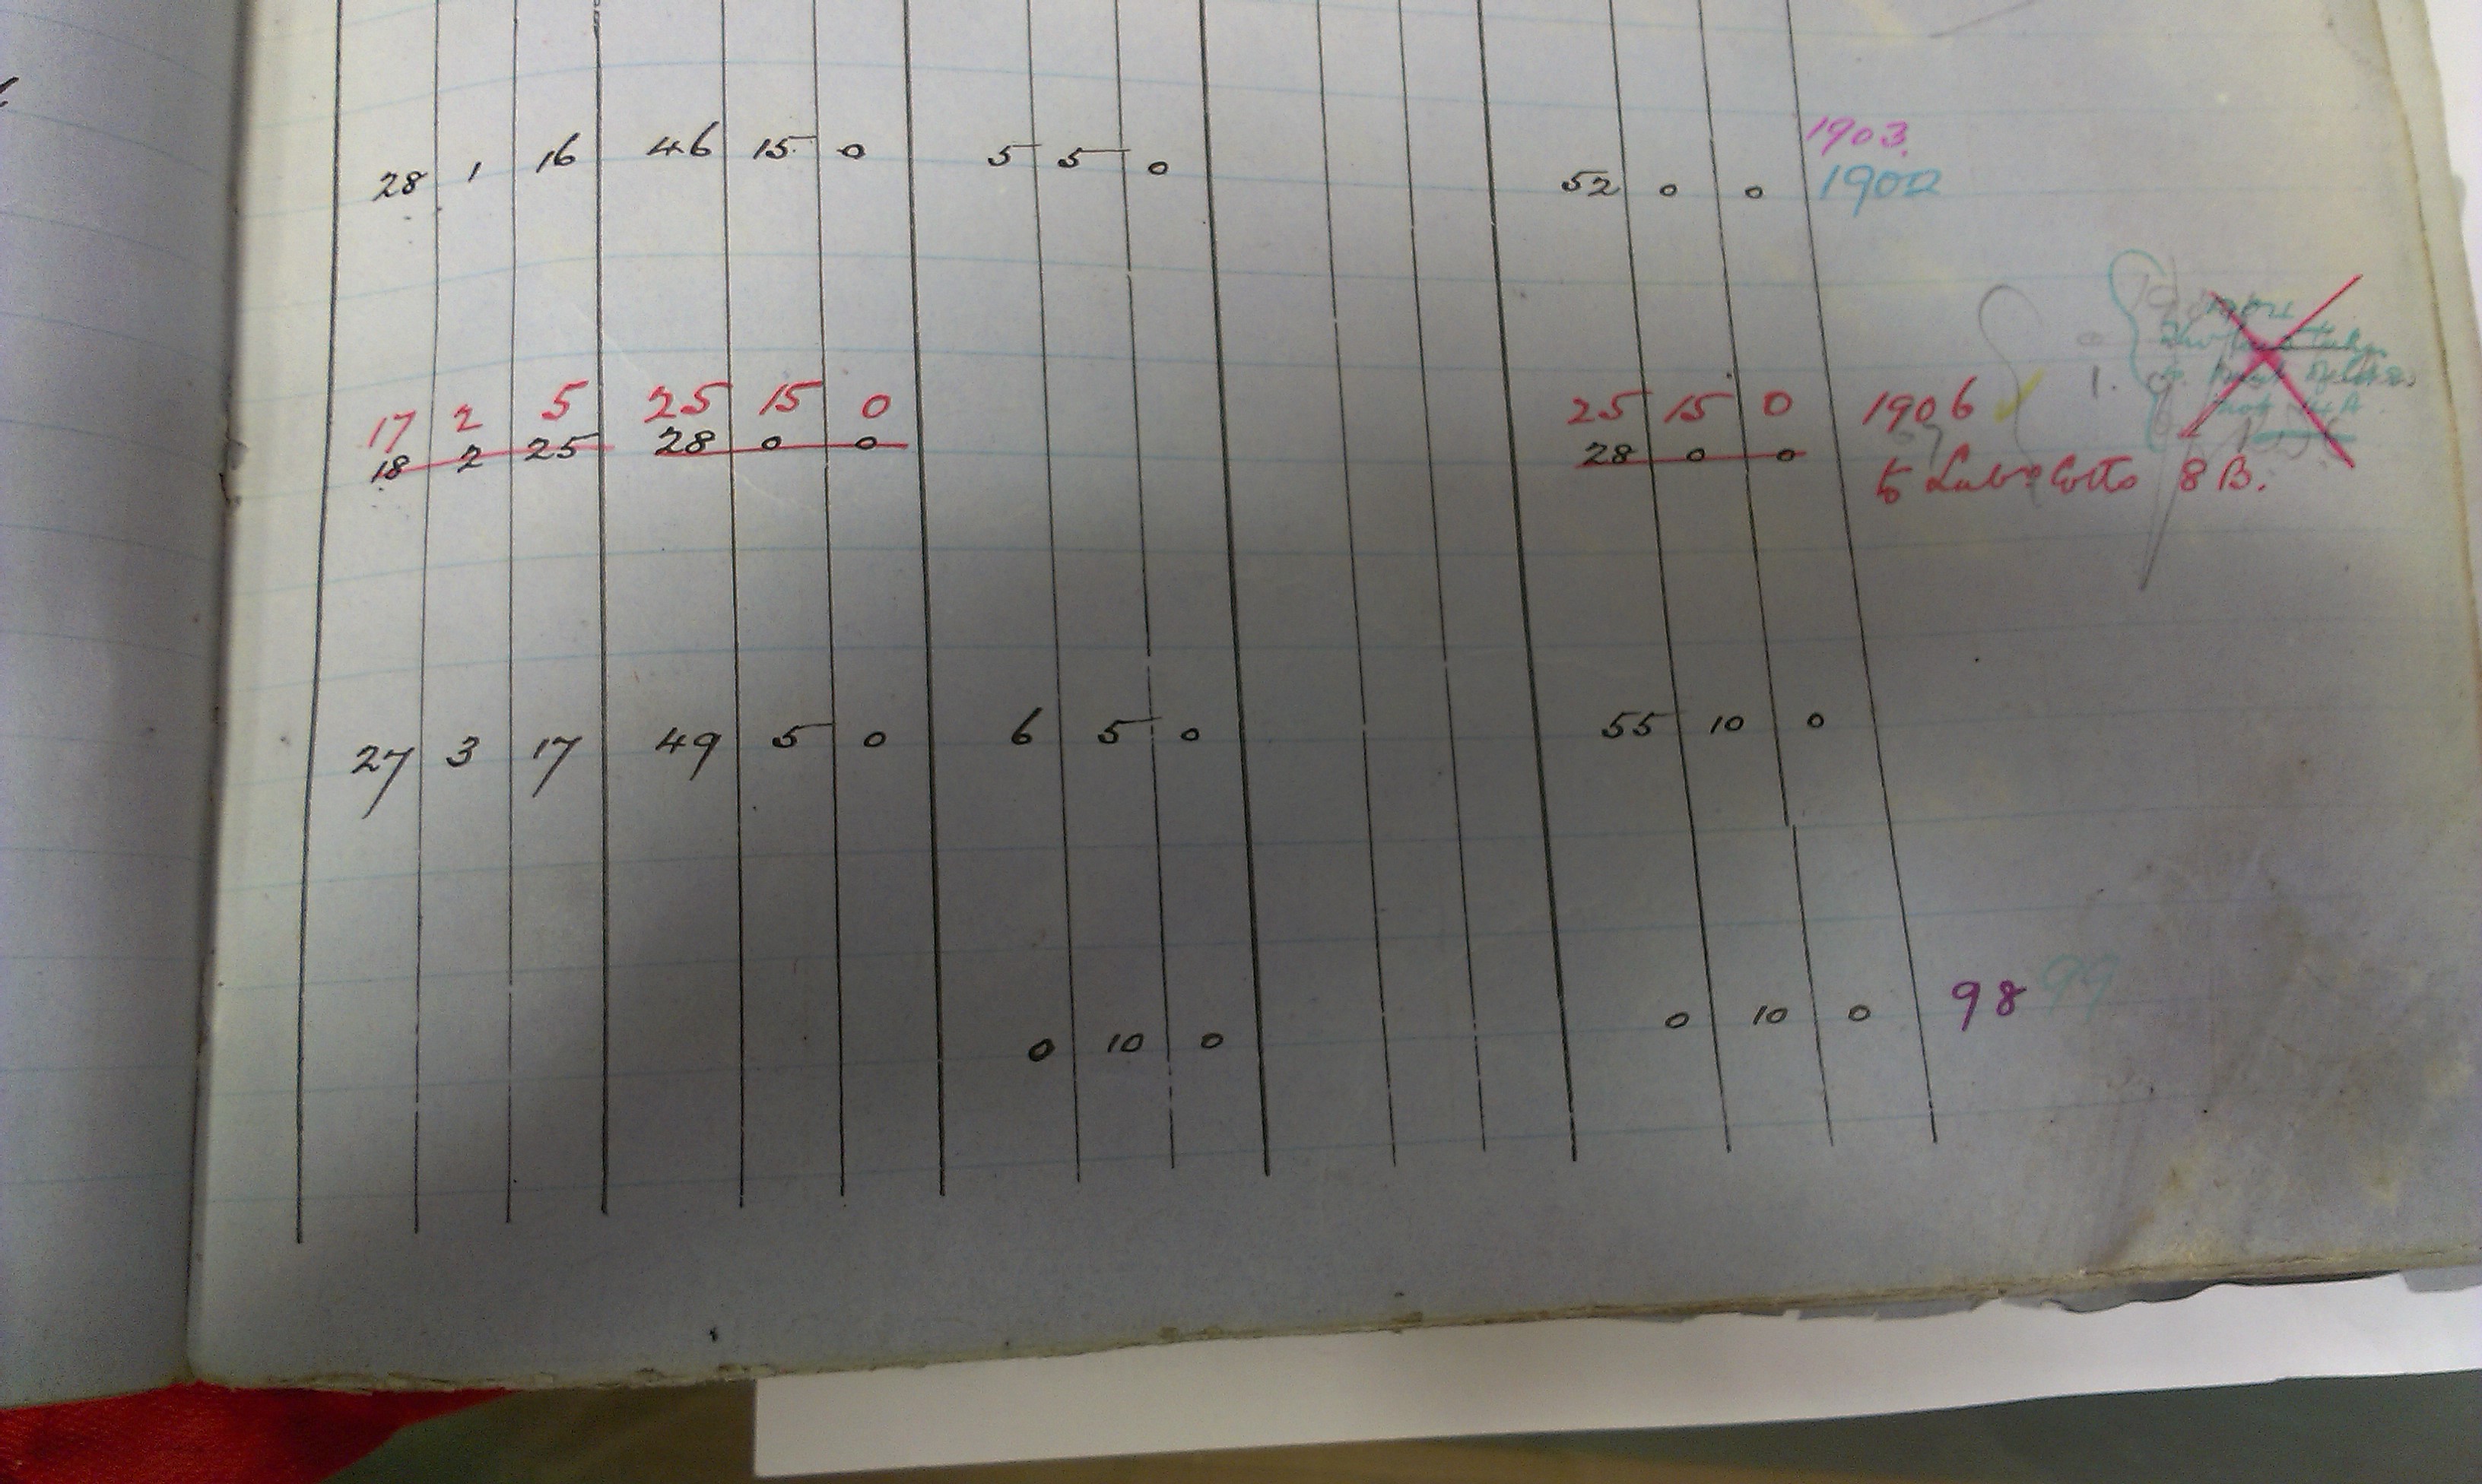 1903.
28 1 16 46 15 0 5 5 0 52 0 0 1902
17 2 5 25 15 0 25 15 0 1906
18 2 25 28 0 0 28 0 0
8 B.
27 3 17 49 5 0 6 5 0 55 10 0
0 10 0 0 10 0 98 99